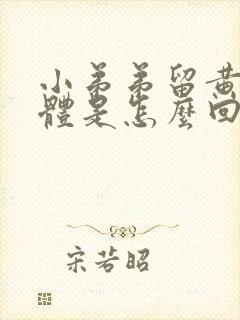 小弟弟留黄
體是怎麼回
宋若昭